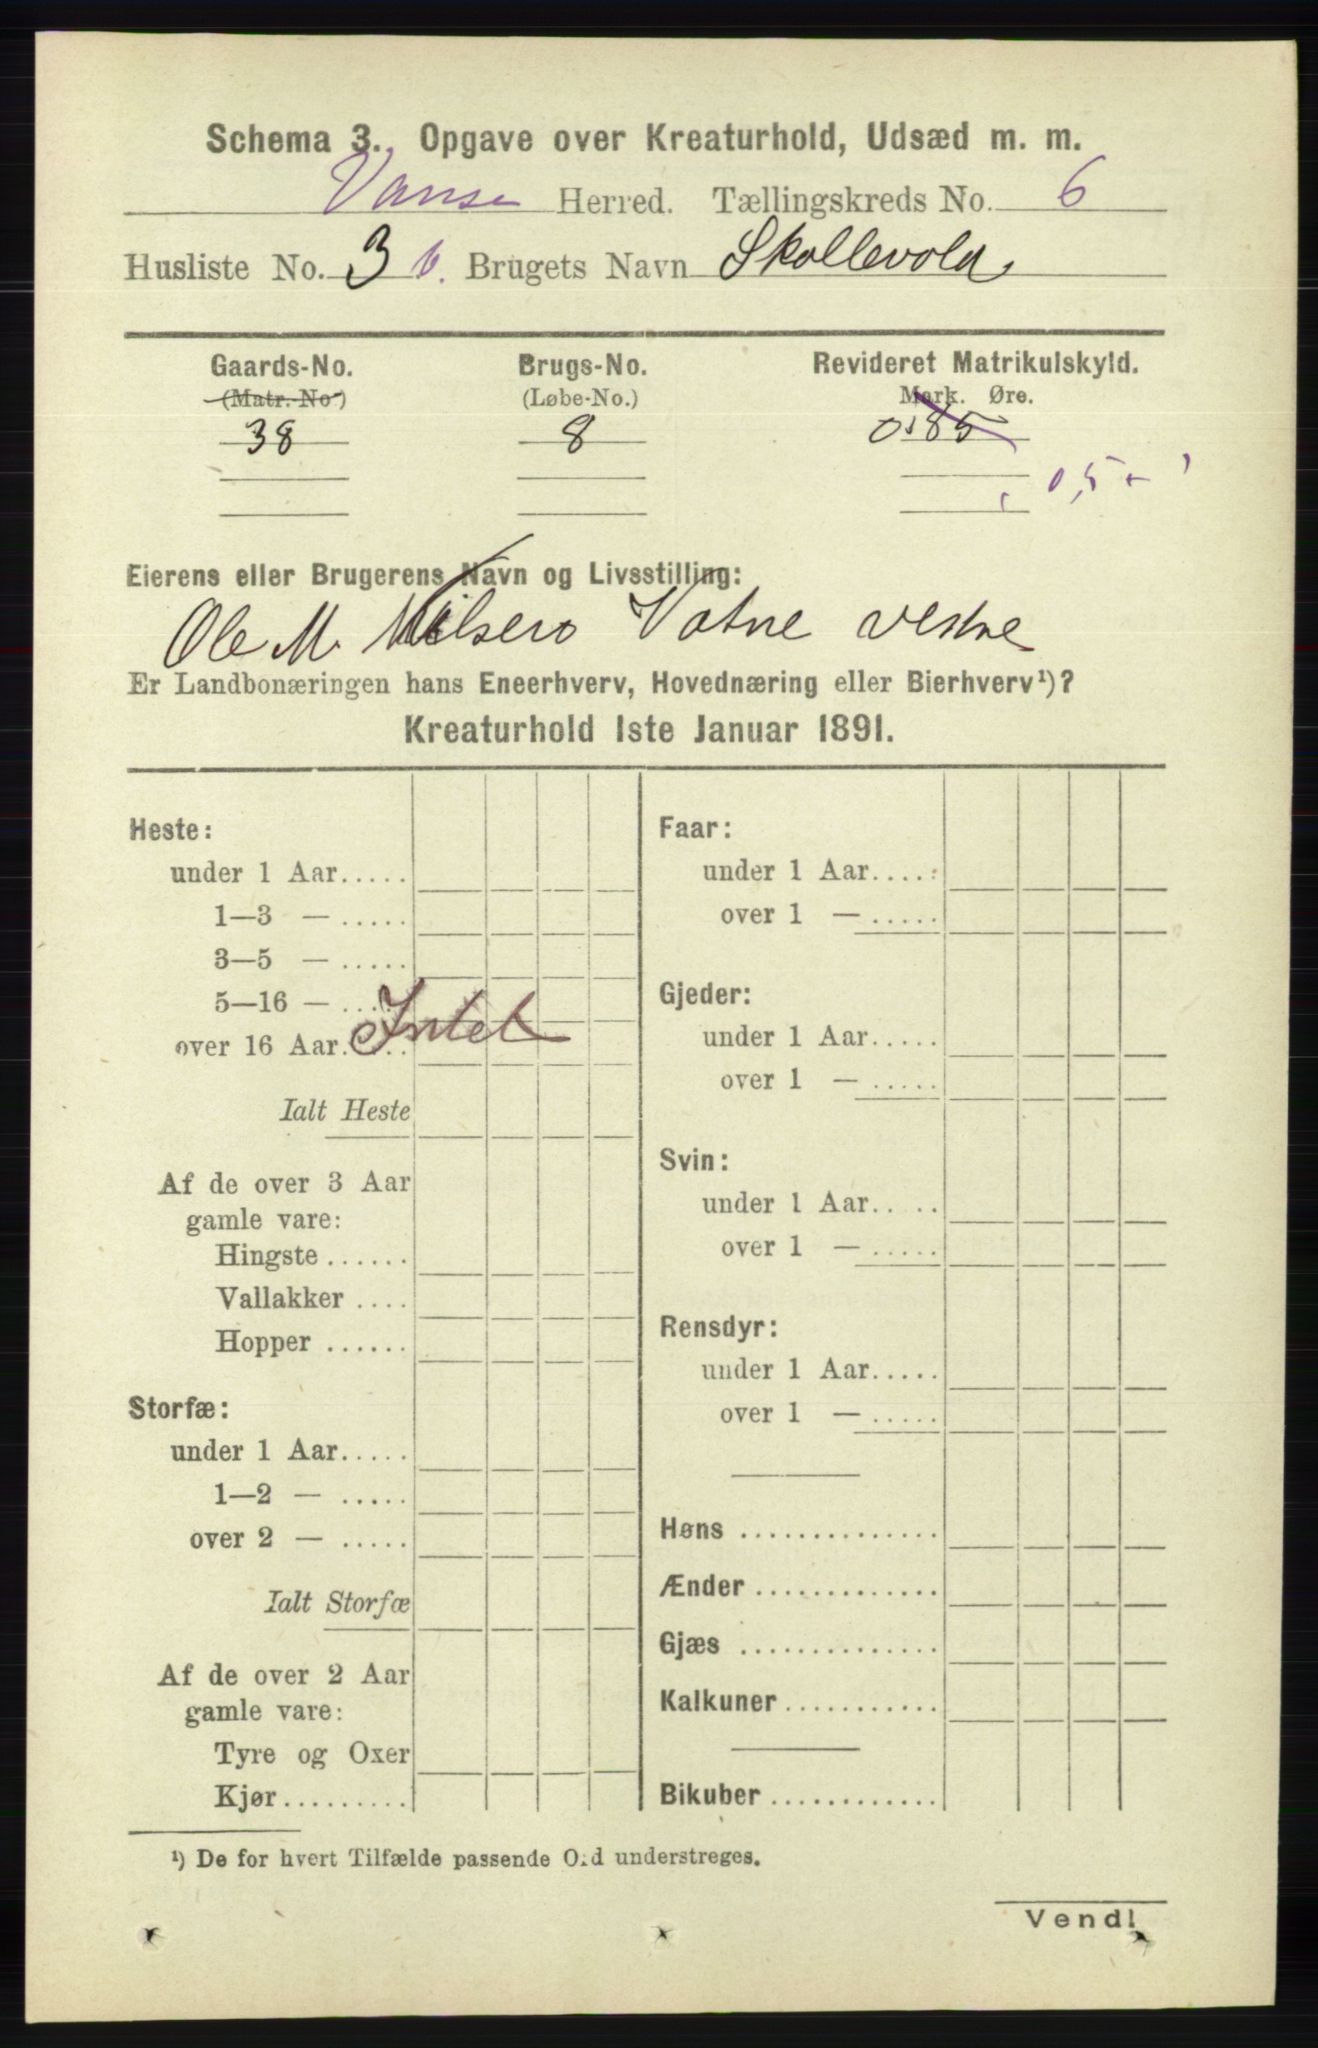 Schema 3. Opgave over Kreaturhold, Udsæd m. m.
Vanse Herred. Tællingskreds No. 6
Husliste No. 3 b. Brugets Navn Skollevold
Gaards-No. Brugs-No. Revideret Matrikulskyld.
(Matr.-No) (Løbe-No.) Mark. Øre.
38 8 0,85
0,5
Eierens eller Brugerens Navn og Livsstilling:
Ole M. Nilsen Vatne vestre
Er Landbonæringen hans Eneerhverv, Hovednæring eller Bierhverv¹)?
Kreaturhold 1ste Januar 1891.
Heste:
under 1 Aar.....
1—3 — .....
3—5 — .....
5—16 — .....
over 16 Aar..... Intet
Ialt Heste
Af de over 3 Aar
gamle vare:
Hingste ......
Vallakker ....
Hopper ......
Storfæ:
under 1 Aar.....
1—2 — .....
over 2 — .....
Ialt Storfæ
Af de over 2 Aar
gamle vare:
Tyre og Oxer
Kjør.........
Faar:
under 1 Aar.....
over 1 — .....
Gjeder:
under 1 Aar.....
over 1 — .....
Svin:
under 1 Aar.....
over 1 — .....
Rensdyr:
under 1 Aar.....
over 1 — .....
Høns ..............
Ænder.............
Gjæs ..............
Kalkuner...........
Bikuber............
¹) De for hvert Tilfælde passende Ord understreges.
Vend!